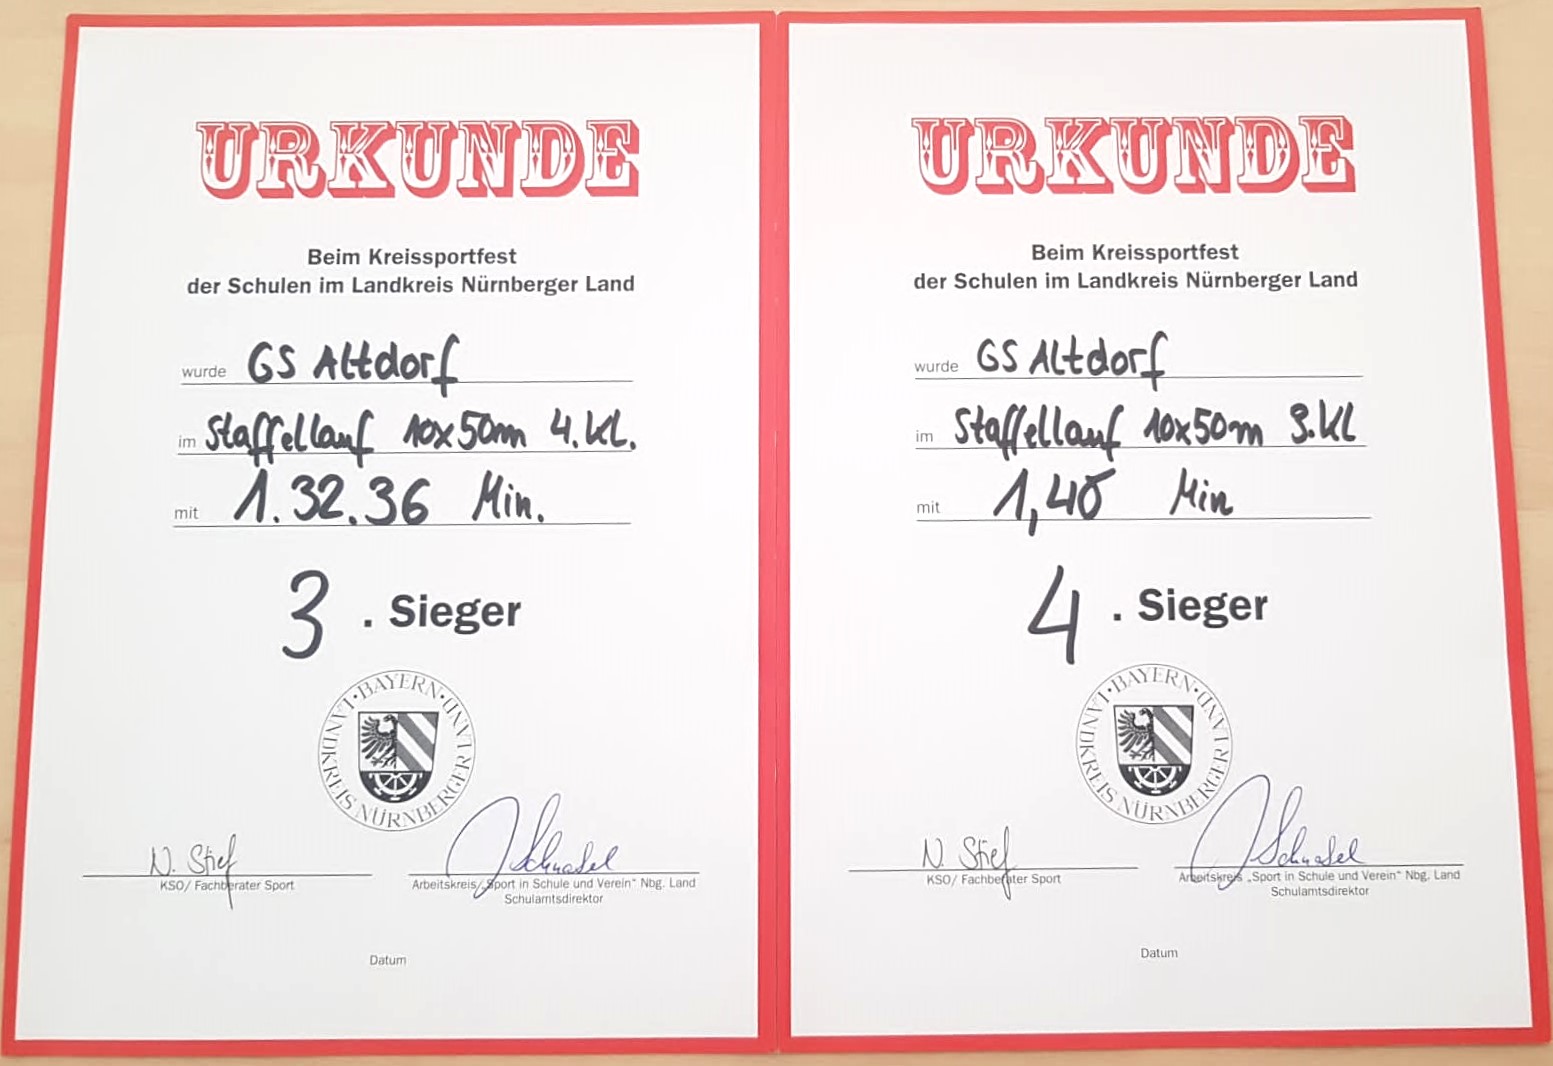 URKUNDE
Beim Kreissportfest
der Schulen im Landkreis Nürnberger Land
wurde GS Altdorf
im Staffellauf 10x50m 4.Kl.
mit 1.32.36 Min.
3 . Sieger
BAYERN · LANDKREIS NÜRNBERGER LAND ·
N. Stief
Schnabel
KSO/ Fachberater Sport
Arbeitskreis „Sport in Schule und Verein“ Nbg. Land
Schulamtsdirektor
Datum
URKUNDE
Beim Kreissportfest
der Schulen im Landkreis Nürnberger Land
wurde GS Altdorf
im Staffellauf 10x50m 3.Kl
mit 1,40 Min
4 . Sieger
BAYERN · LANDKREIS NÜRNBERGER LAND ·
N. Stief
Schnabel
KSO/ Fachberater Sport
Arbeitskreis „Sport in Schule und Verein“ Nbg. Land
Schulamtsdirektor
Datum